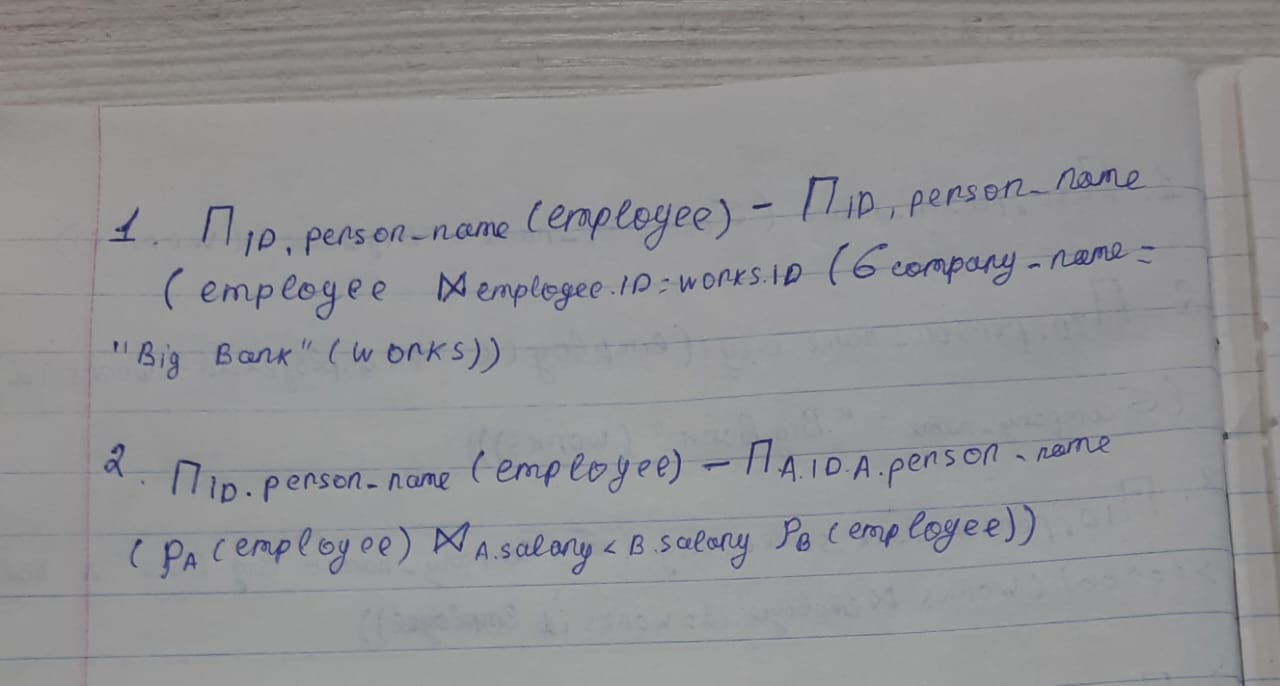 1. Π ID, person_name (employee) - Π ID, person_name
(employee ⋈ employee.ID = works.ID (σ company_name =
"Big Bank" (works))
2. Π ID. person_name (employee) - Π A.ID.A.person_name
(ρA (employee) ⋈ A.salary < B.salary ρB (employee))